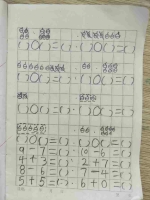 ( )○( )=( ) ( )○( )=( )
( )○( )=( ) ( )○( )=( )
( )○( )=( ) ( )○( )=( )
( )○( )=( ) ( )○( )=( )
9-7= 8-6=
4+3= 2+7=
8-6= 7-4=
5+5= 6+0=